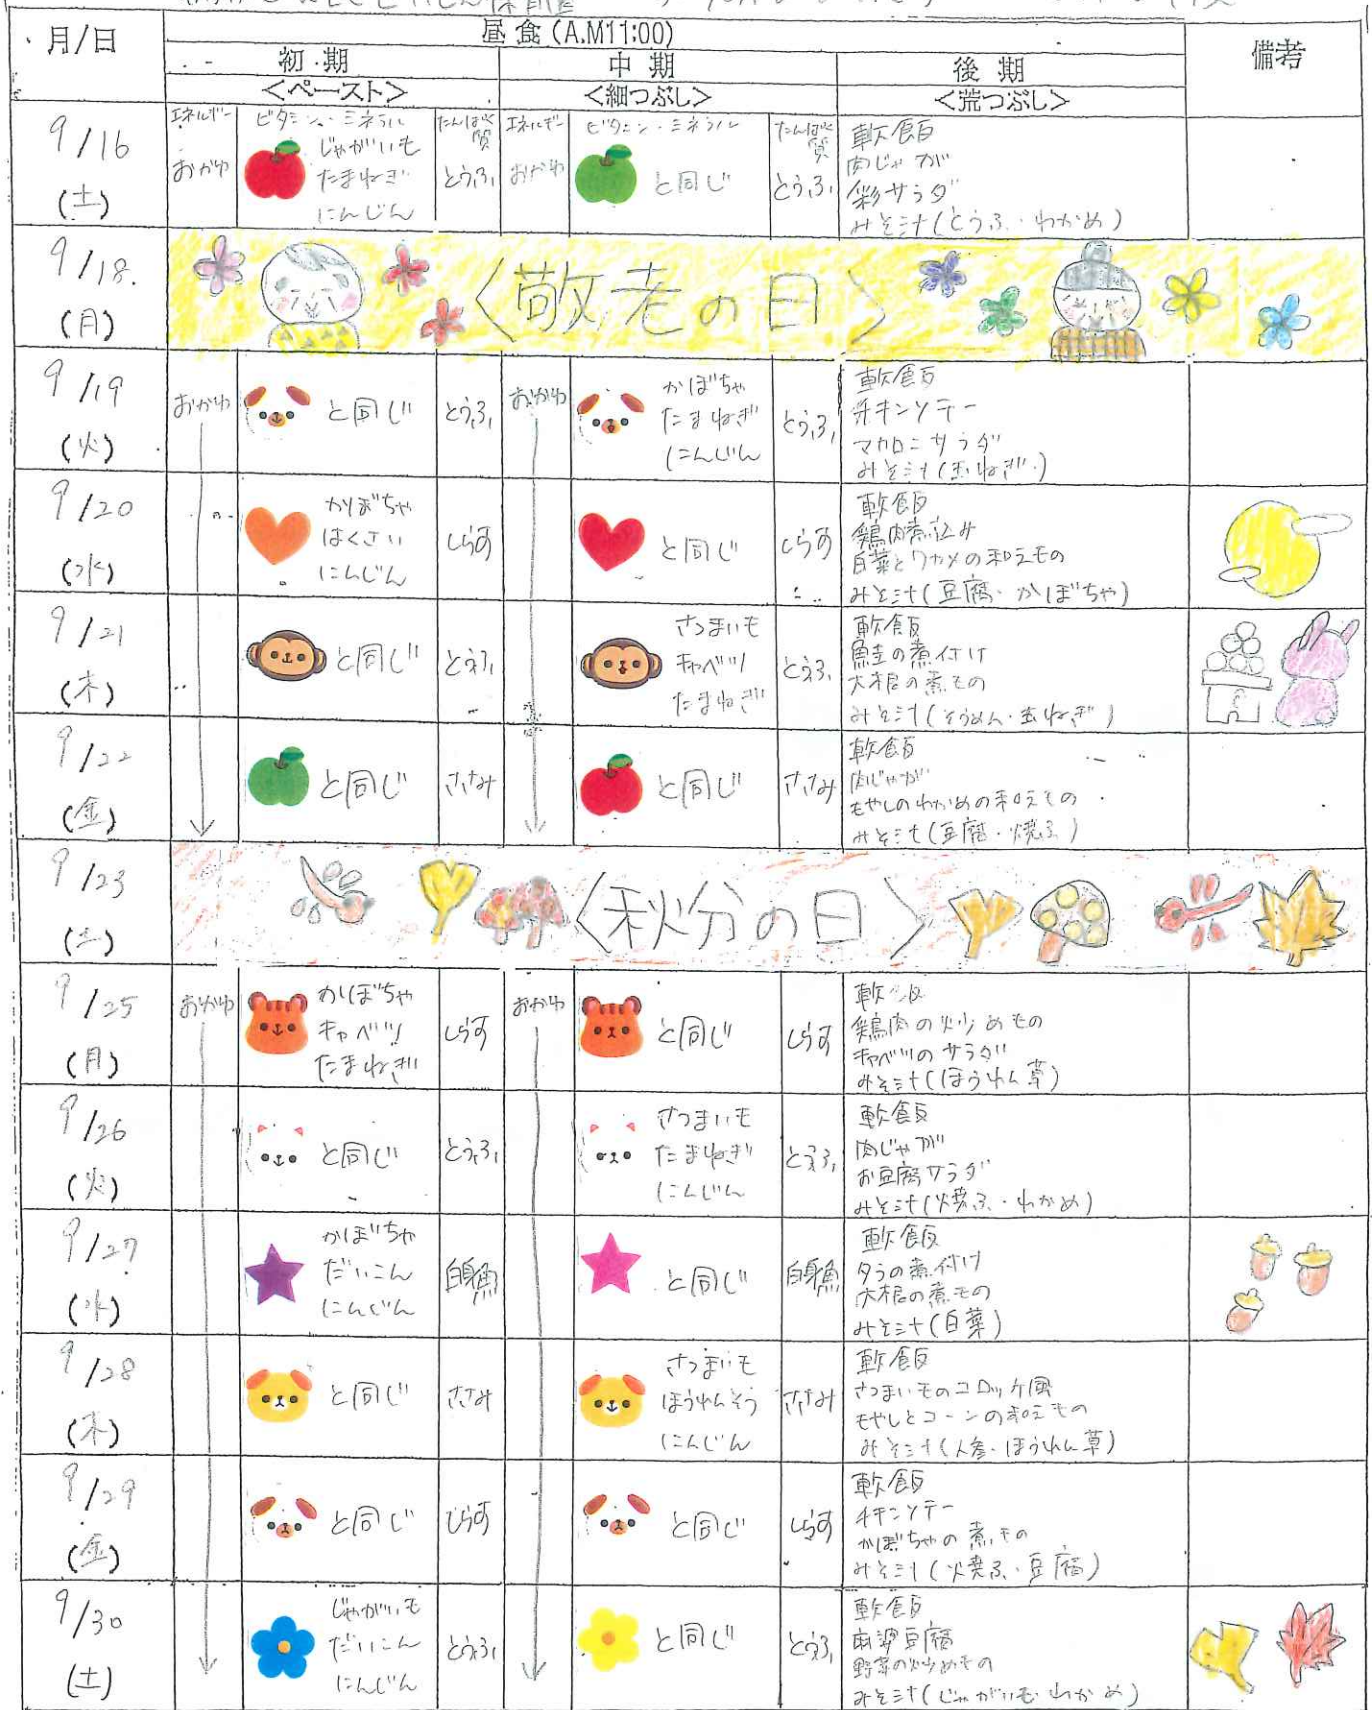 月/日
昼食(A.M11:00)
備考
初期
中期
後期
<ペースト>
<細つぶし>
<荒つぶし>
9/16
(土)
エネルギー
おかゆ
ビタミン・ミネラル
じゃがいも
たまねぎ
にんじん
たんぱく質
とうふ
エネルギー
おかゆ
ビタミン・ミネラル
と同じ
たんぱく質
とうふ
軟飯
肉じゃが
彩サラダ
みそ汁(とうふ・わかめ)
9/18.
(月)
<敬老の日>
9/19
(火)
おかゆ
と同じ
とうふ
おかゆ
かぼちゃ
たまねぎ
にんじん
とうふ
軟飯
チキンソテー
マカロニサラダ
みそ汁(玉ねぎ)
9/20
(水)
かぼちゃ
はくさい
にんじん
しらす
と同じ
しらす
軟飯
鶏肉煮込み
白菜とワカメの和えもの
みそ汁(豆腐・かぼちゃ)
9/21
(木)
と同じ
とうふ
さつまいも
キャベツ
たまねぎ
とうふ
軟飯
鮭の煮付け
大根の煮もの
みそ汁(そうめん・玉ねぎ)
9/22
(金)
と同じ
ささみ
と同じ
ささみ
軟飯
肉じゃが
もやしのわかめの和えもの
みそ汁(豆腐・焼ふ)
9/23
(土)
<秋分の日>
9/25
(月)
おかゆ
かぼちゃ
キャベツ
たまねぎ
しらす
おかゆ
と同じ
しらす
軟飯
鶏肉の炒めもの
キャベツのサラダ
みそ汁(ほうれん草)
9/26
(火)
と同じ
とうふ
さつまいも
たまねぎ
にんじん
とうふ
軟飯
肉じゃが
お豆腐サラダ
みそ汁(焼ふ・わかめ)
9/27
(水)
かぼちゃ
だいこん
にんじん
白身魚
と同じ
白身魚
軟飯
タラの煮付け
大根の煮もの
みそ汁(白菜)
9/28
(木)
と同じ
ささみ
さつまいも
ほうれんそう
にんじん
ささみ
軟飯
さつまいものコロッケ風
もやしとコーンの和えもの
みそ汁(人参・ほうれん草)
9/29
(金)
と同じ
しらす
と同じ
しらす
軟飯
チキンソテー
かぼちゃの煮もの
みそ汁(焼ふ・豆腐)
9/30
(土)
じゃがいも
だいこん
にんじん
とうふ
と同じ
とうふ
軟飯
麻婆豆腐
野菜の炒めもの
みそ汁(じゃがいも わかめ)